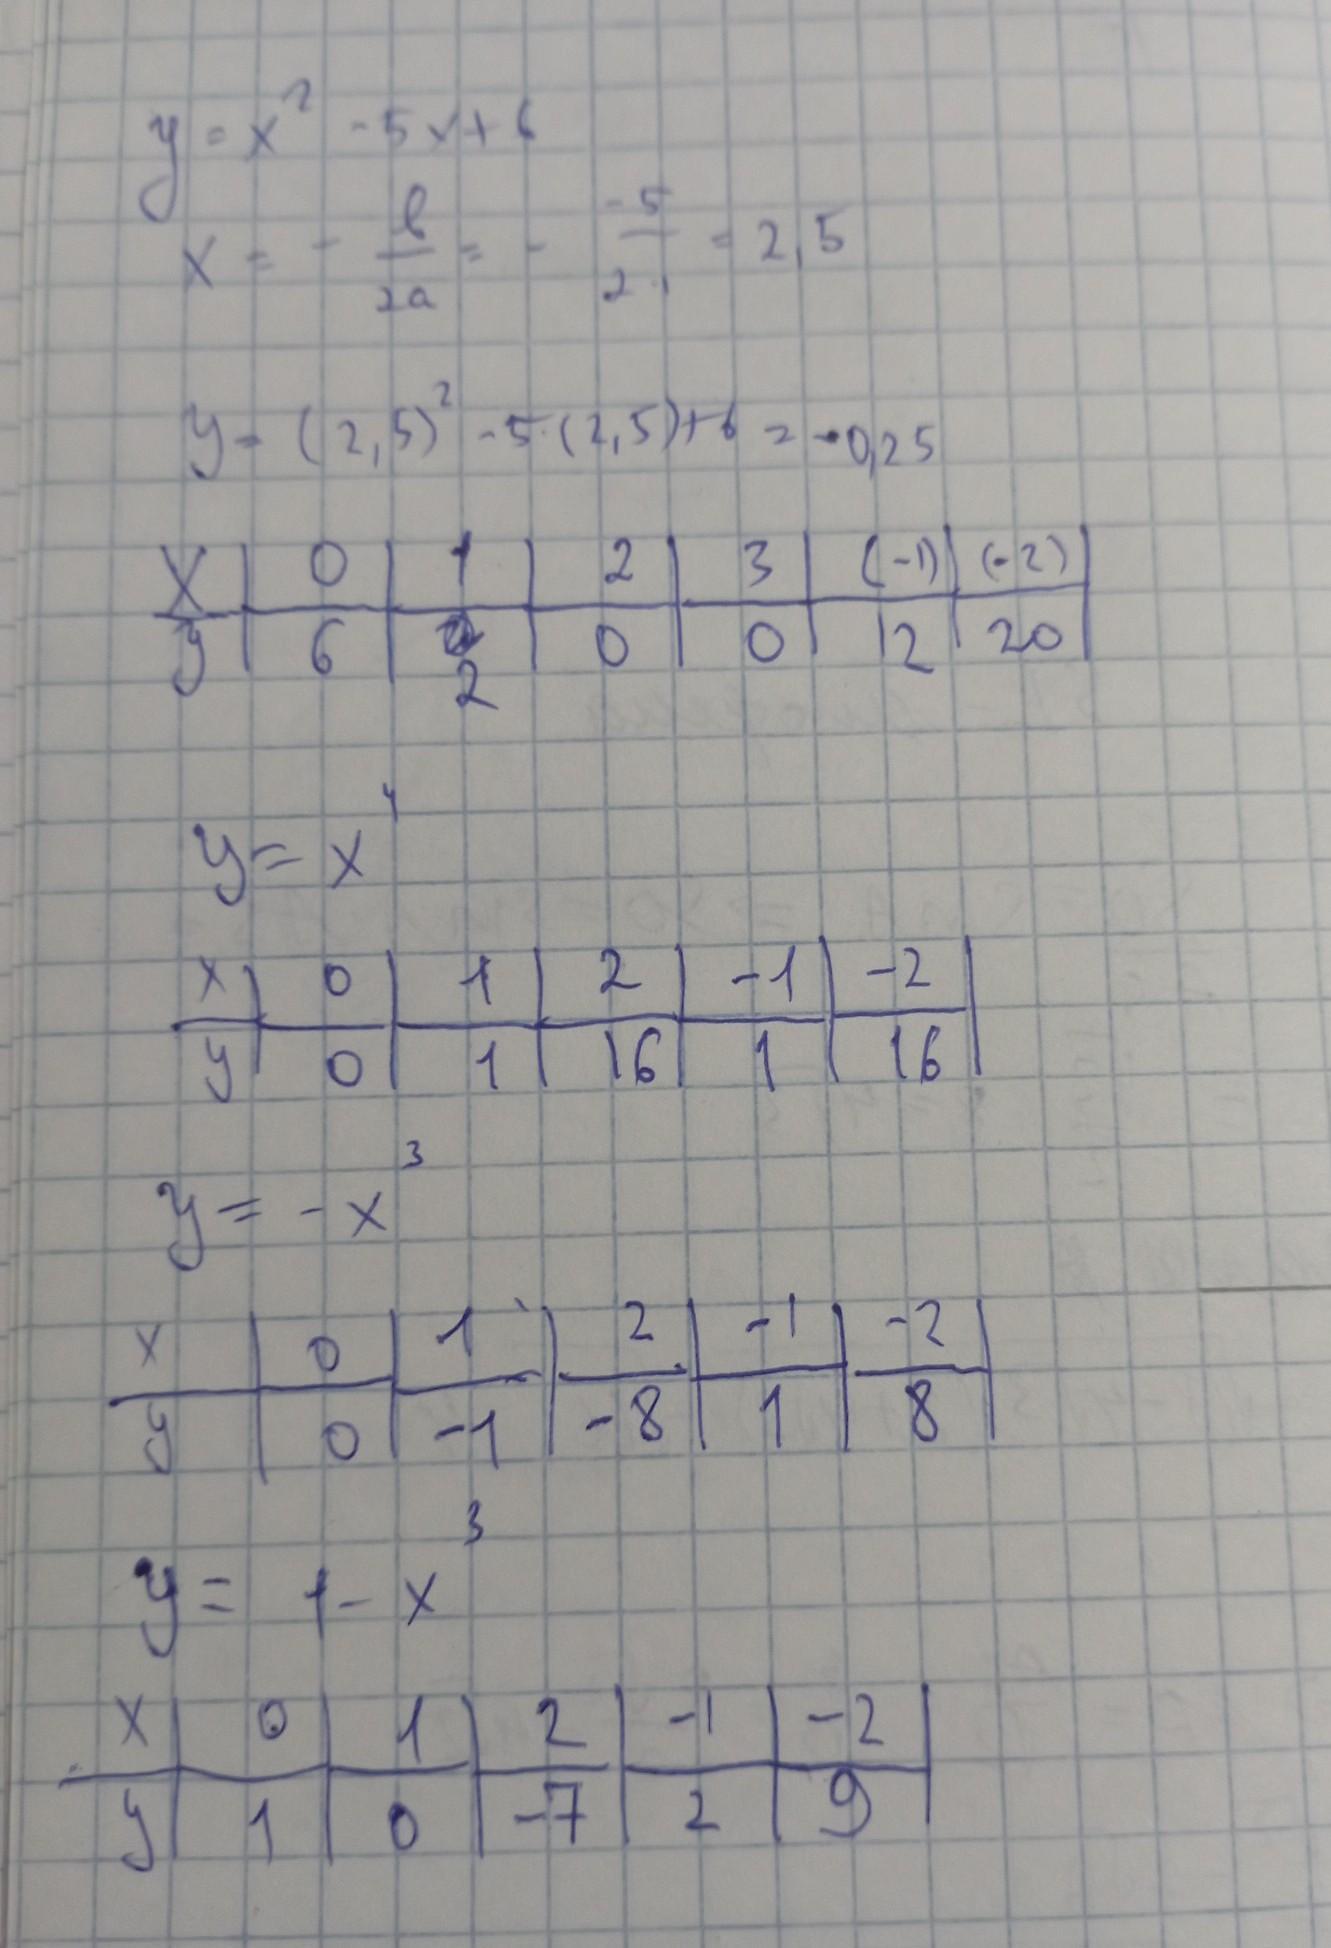 y = x² - 5x + 6
x = - b/2a = - -5/2·1 = 2,5
y = (2,5)² - 5·(2,5) + 6 = -0,25
x | 0 | 1 | 2 | 3 | (-1) | (-2) |
y | 6 | 2 | 0 | 0 | 12 | 20 |
y = x⁴
x | 0 | 1 | 2 | -1 | -2 |
y | 0 | 1 | 16 | 1 | 16 |
y = -x³
x | 0 | 1 | 2 | -1 | -2 |
y | 0 | -1 | -8 | 1 | 8 |
y = 1 - x³
x | 0 | 1 | 2 | -1 | -2 |
y | 1 | 0 | -7 | 2 | 9 |